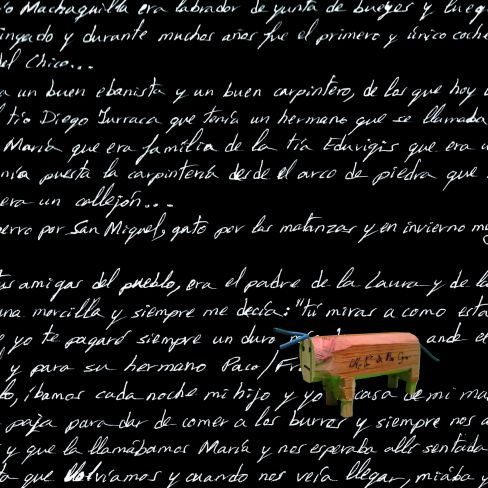 ío Machaquilla era labrador de yunta de bueyes y luego
inyado y durante muchos años fue el primero y único coche
del Chico...
a un buen ebanista y un buen carpintero, de los que hoy
l tío Diego Jurraca que tenía un hermano que se llamaba
María que era familia de la tía Eduvigis que era u
nía puesta la carpintería desde el arco de piedra que
era un callejón...
perro por San Miguel, gato por las matanzas y en invierno m
us amigas del pueblo, era el padre de la Laura y de l
una morcilla y siempre me decía: "Tú miras a como esta
e yo te pagaré siempre un duro ande el
y para su hermano Paco/Fr
lo, íbamos cada noche mi hijo y yo casa de mi ma
paja para dar de comer a los burros y siempre nos a
y que la llamábamos María y nos esperaba allí sentada
ta que volvíamos y cuando nos veía llegar, miába y